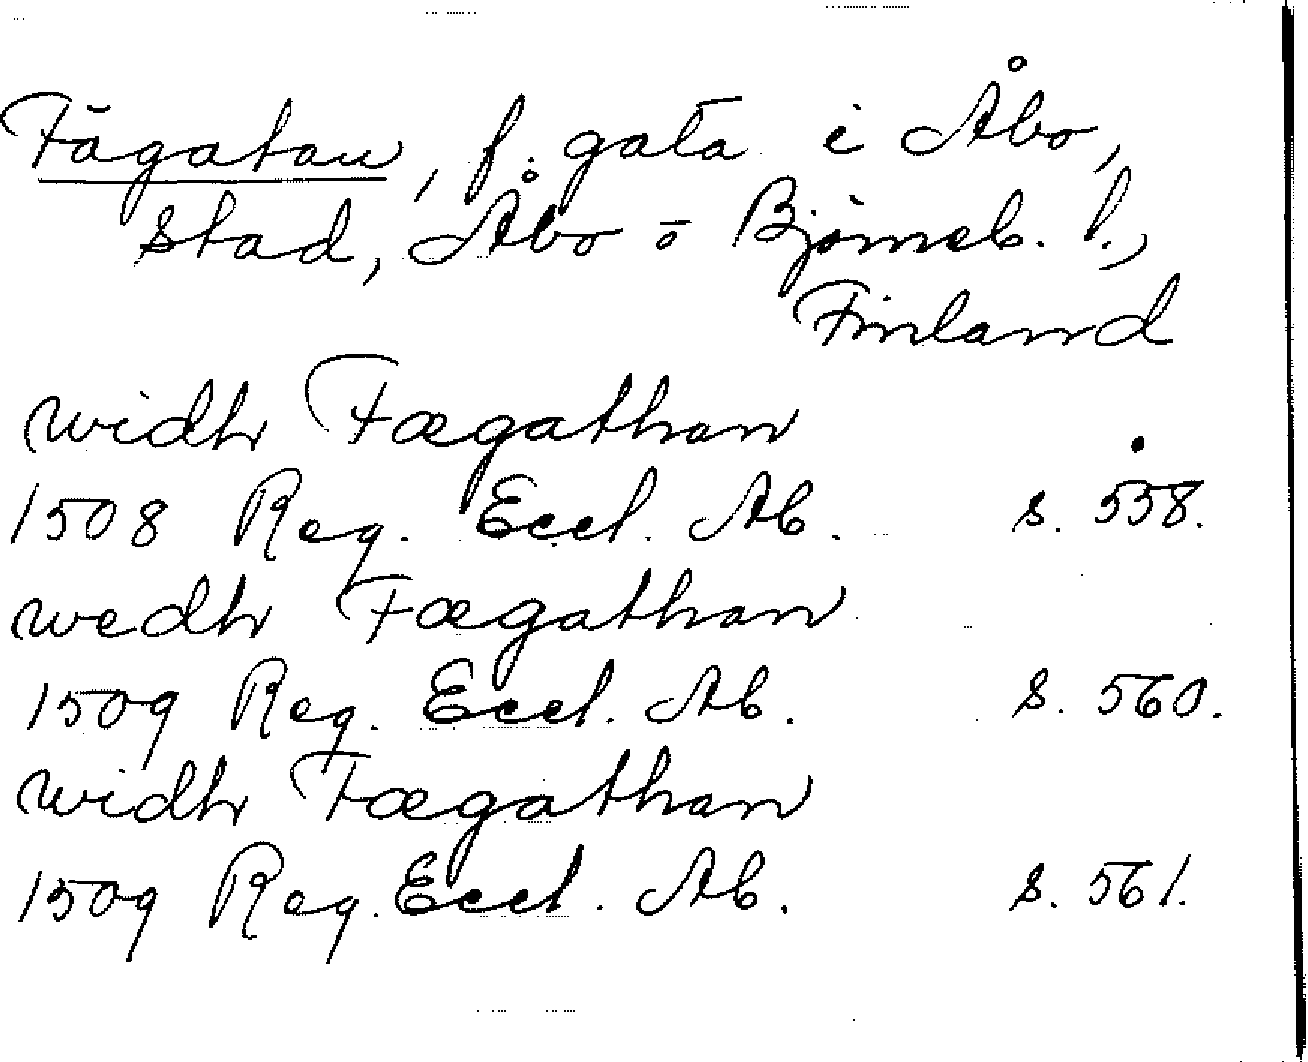 Fägatan, f. gata i Åbo,
stad, Åbo o Björneb. l.,
Finland
widh Fægathan
1508 Reg. Eccl. Ab. s. 538.
wedh Fægathan
1509 Reg. Eccl. Ab. s. 560.
widh Fægathan
1509 Reg. Eccl. Ab. s. 561.